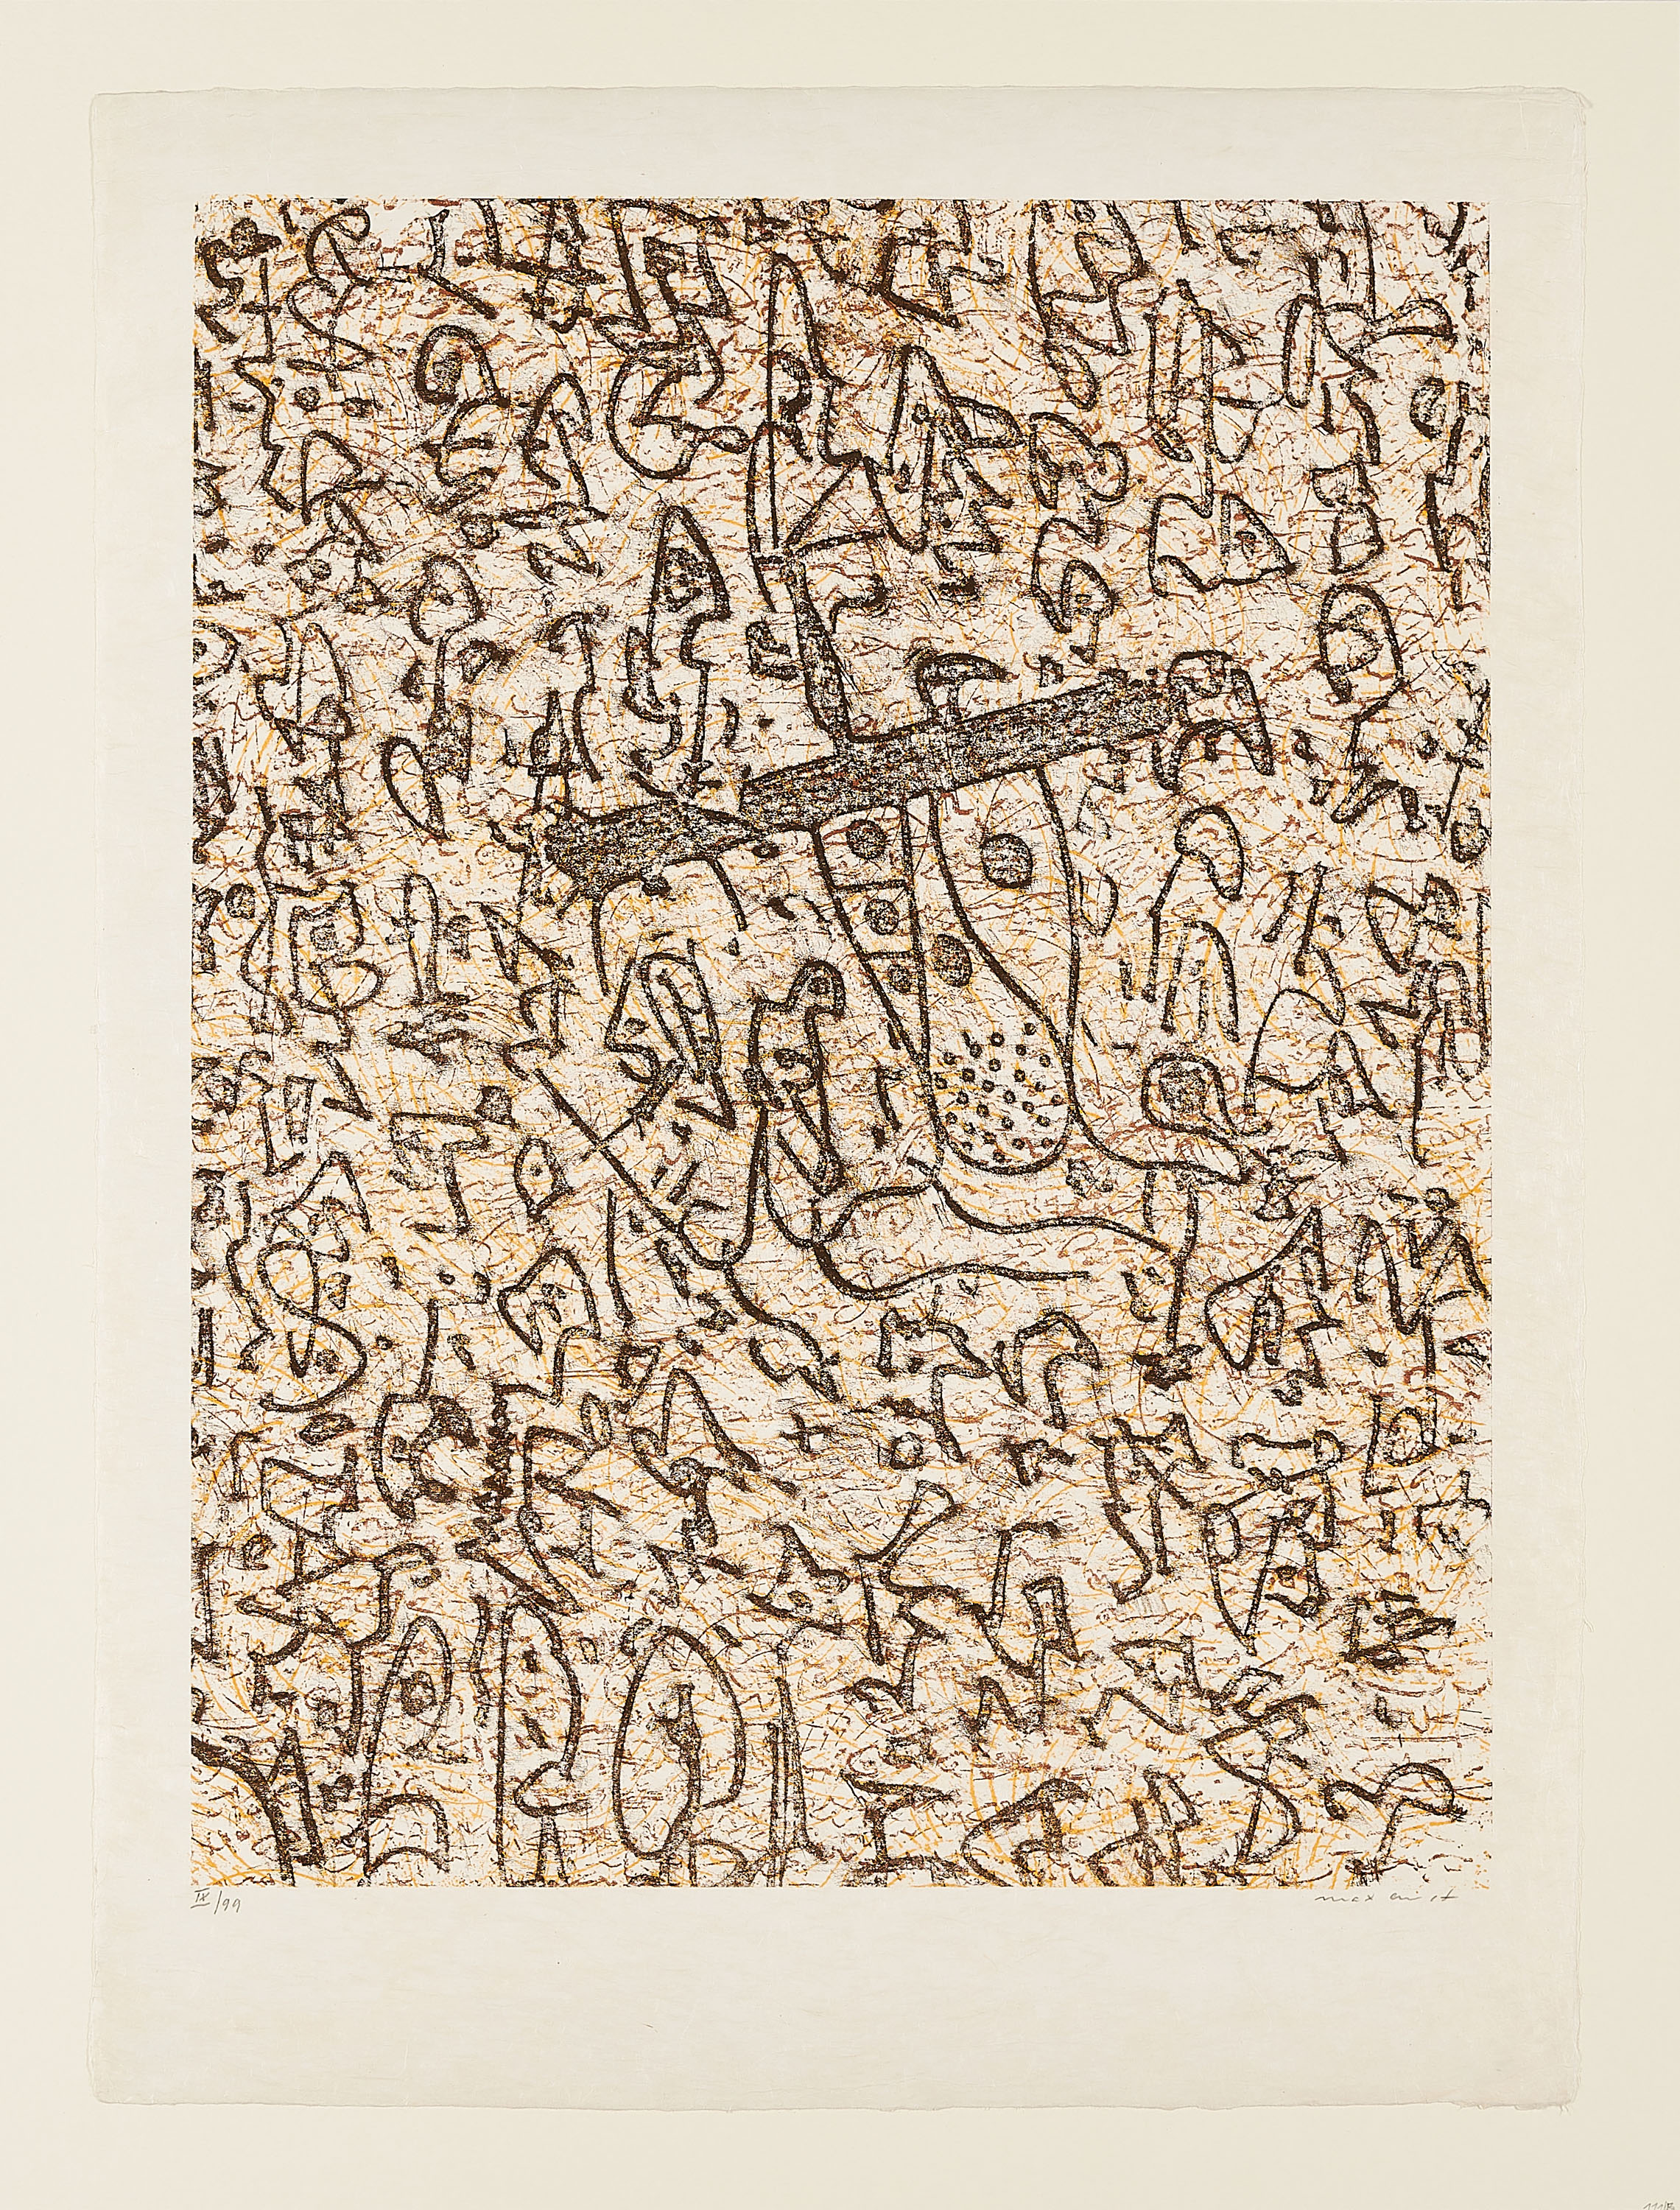 IX/99
max ernst